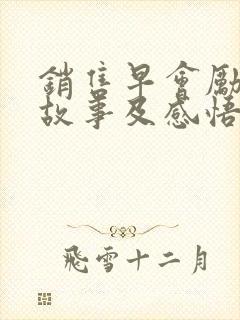 銷售早會勵
故事及感悟
飛雪十二月